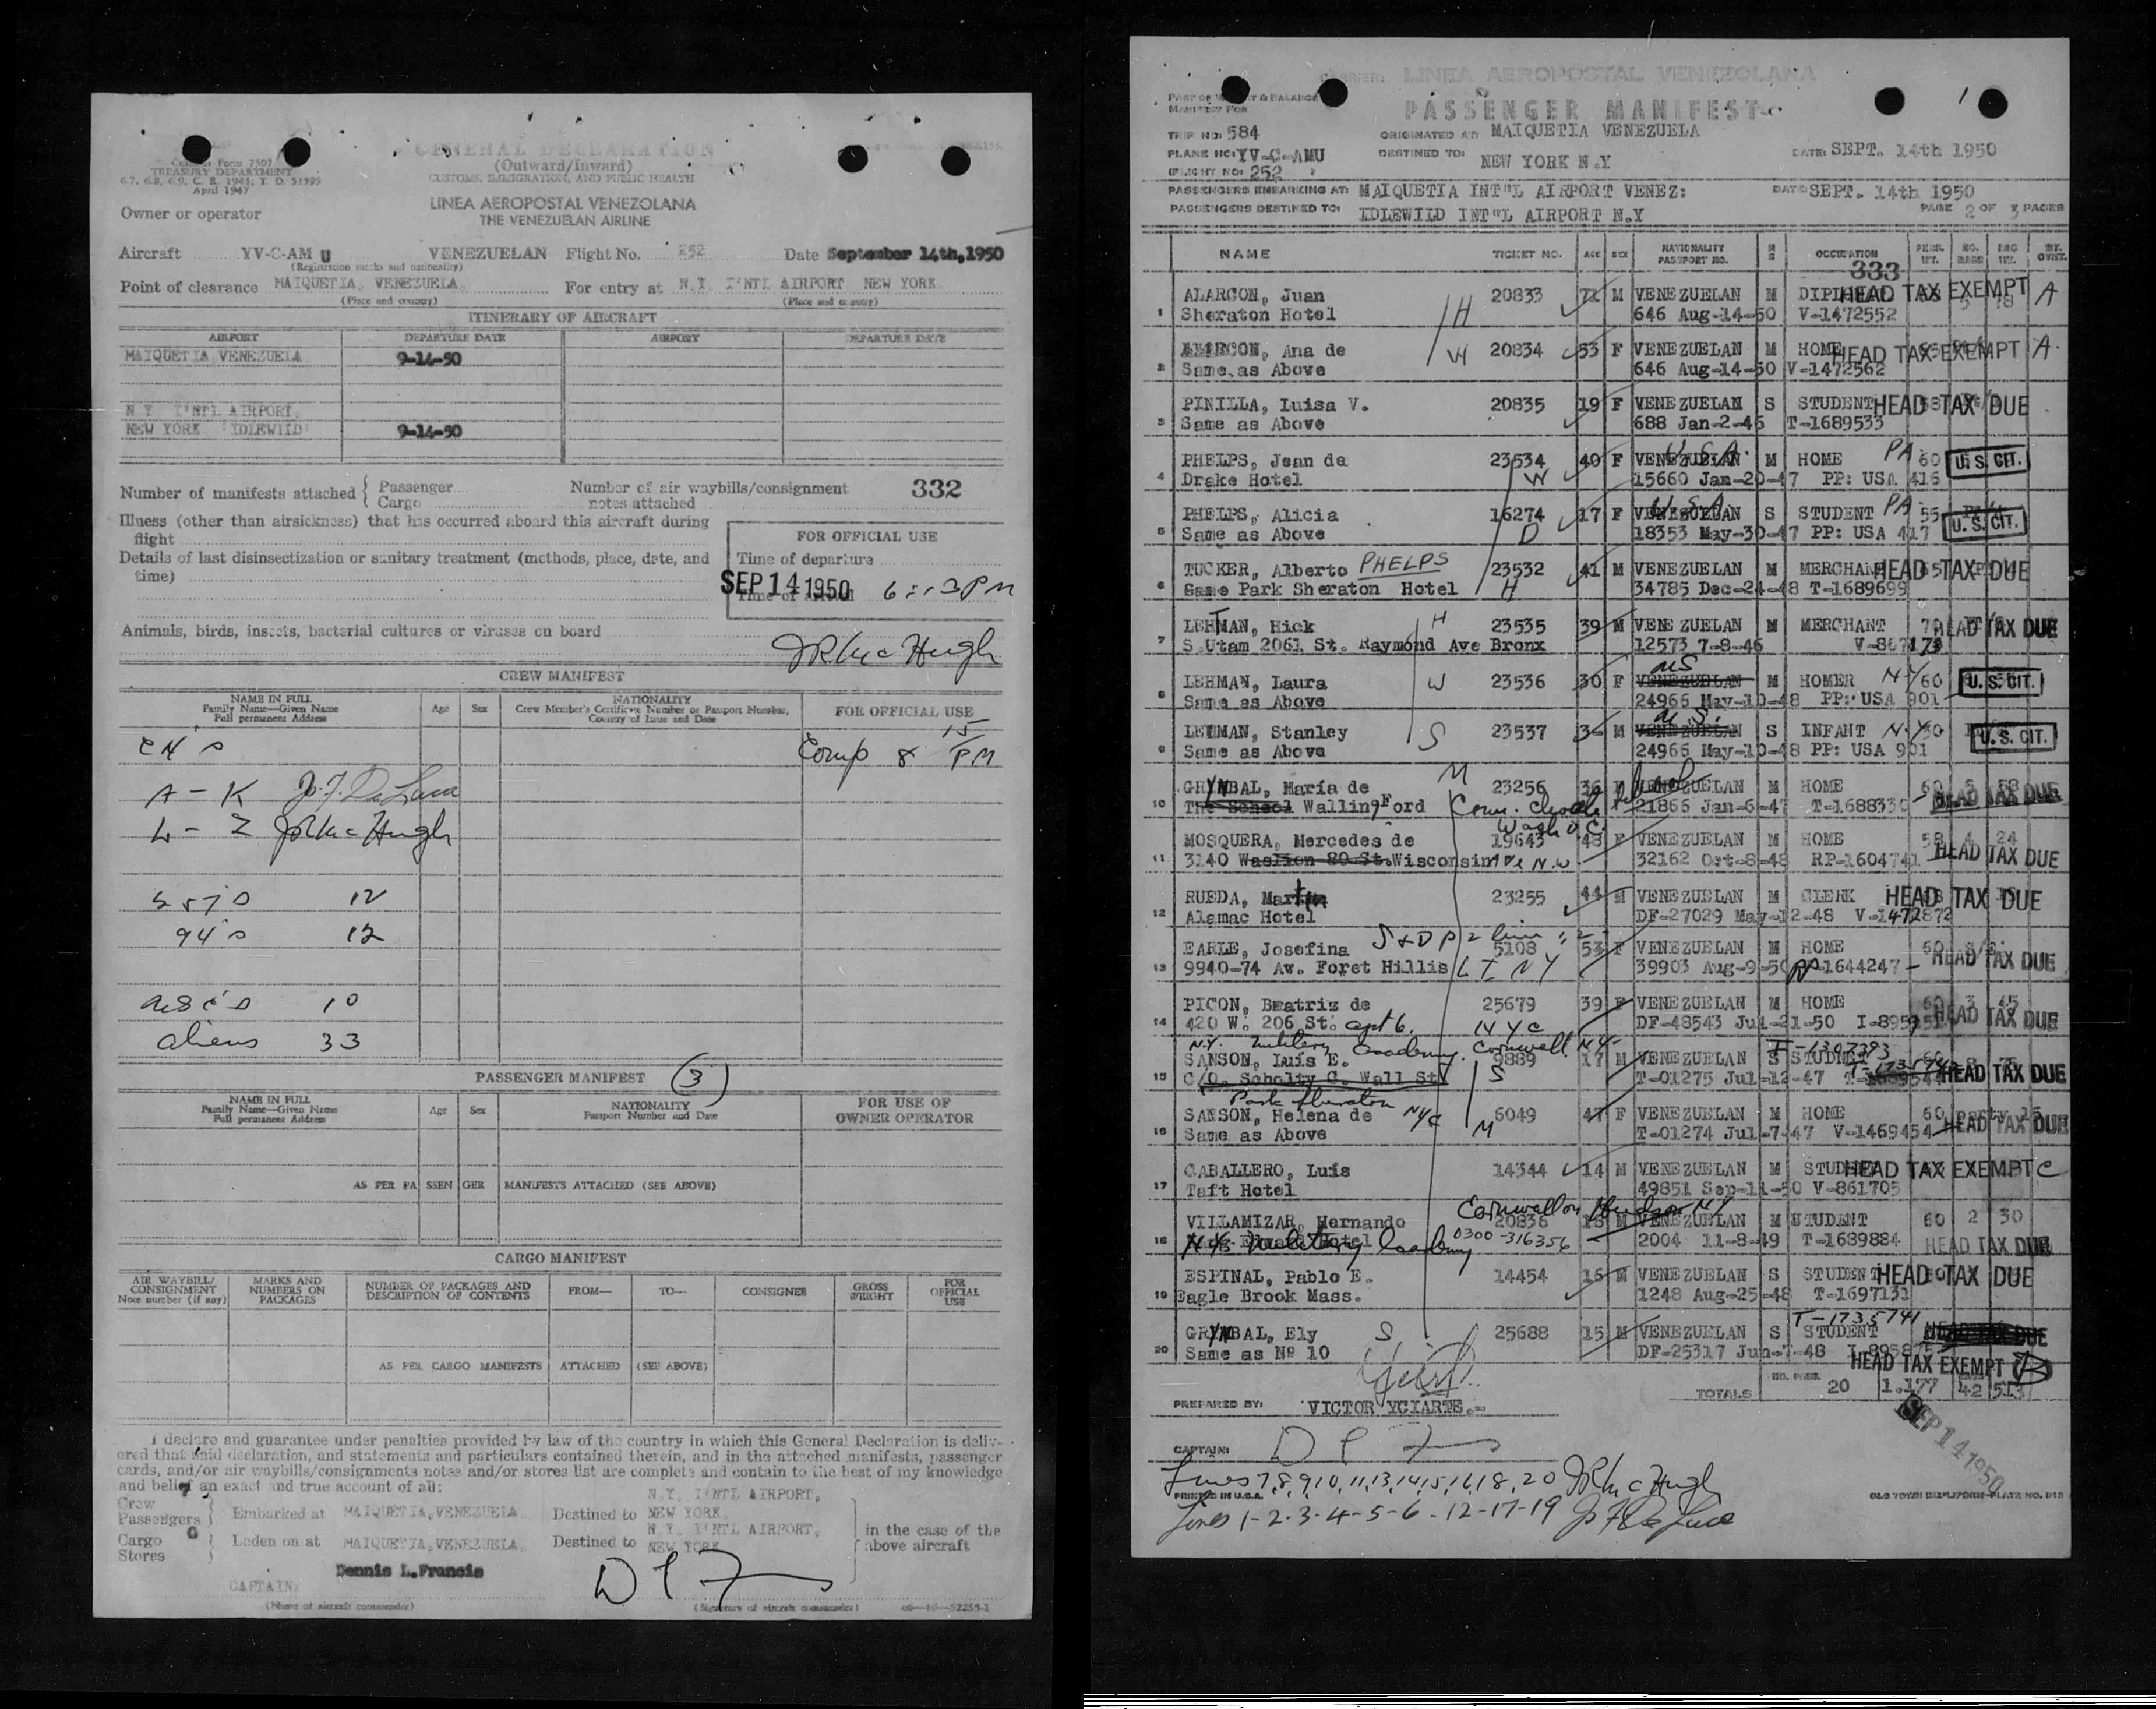 Customs Form 7507
TREASURY DEPARTMENT
6.7, 6.8, 6.9, C. R. 1943; T. D. 51595
April 1947
GENERAL DECLARATION
(Outward/Inward)
CUSTOMS, IMMIGRATION, AND PUBLIC HEALTH
LINEA AEROPOSTAL VENEZOLANA
THE VENEZUELAN AIRLINE
Owner or operator
Aircraft YV-C-AM U VENEZUELAN Flight No. 252 Date September 14th, 1950
(Registration marks and nationality)
Point of clearance MAIQUETIA, VENEZUELA For entry at N.Y. I'NTL AIRPORT NEW YORK
(Place and country) (Place and country)
ITINERARY OF AIRCRAFT
AIRPORT DEPARTURE DATE AIRPORT DEPARTURE DATE
MAIQUETIA, VENEZUELA 9-14-50
N.Y. I'NTL AIRPORT,
NEW YORK 'IDLEWILD' 9-14-50
Number of manifests attached { Passenger Number of air waybills/consignment 332
Cargo notes attached
Illness (other than airsickness) that has occurred aboard this aircraft during
flight
FOR OFFICIAL USE
Details of last disinsectization or sanitary treatment (methods, place, date, and
time)
Time of departure
SEP 14 1950 6:13PM
Time of arrival
Animals, birds, insects, bacterial cultures or viruses on board
JR McHugh
CREW MANIFEST
NAME IN FULL
Family Name—Given Name
Full permanent Address
Age Sex
NATIONALITY
Crew Member's Certificate Number or Passport Number,
Country of Issue and Date
FOR OFFICIAL USE
Comp 8 15 PM
A - K J.F. DeLuca
L - Z JR McHugh
257s 12
94's 12
USC's 10
aliens 33
PASSENGER MANIFEST (3)
NAME IN FULL
Family Name—Given Name
Full permanent Address
Age Sex
NATIONALITY
Passport Number and Date
FOR USE OF
OWNER OPERATOR
AS PER PASSENGER MANIFESTS ATTACHED (SEE ABOVE)
CARGO MANIFEST
AIR WAYBILL/
CONSIGNMENT
Note number (if any)
MARKS AND
NUMBERS ON
PACKAGES
NUMBER OF PACKAGES AND
DESCRIPTION OF CONTENTS
FROM— TO— CONSIGNEE
GROSS
WEIGHT
FOR
OFFICIAL
USE
AS PER CARGO MANIFESTS ATTACHED (SEE ABOVE)
I declare and guarantee under penalties provided by law of the country in which this General Declaration is deliv-
ered that said declaration, and statements and particulars contained therein, and in the attached manifests, passenger
cards, and/or air waybills/consignments notes and/or stores list are complete and contain to the best of my knowledge
and belief an exact and true account of all:
Crew
Passengers } Embarked at MAIQUETIA, VENEZUELA Destined to N.Y. I'NTL AIRPORT, NEW YORK,
Cargo
Stores } Laden on at MAIQUETIA, VENEZUELA Destined to N.Y. I'NTL AIRPORT, NEW YORK
in the case of the
above aircraft
Dennis L. Francis
CAPTAIN:
(Name of aircraft commander) (Signature of aircraft commander)
CARRIER: LINEA AEROPOSTAL VENEZOLANA
PASSENGER MANIFEST
MANIFEST FOR
TRIP NO: 584 ORIGINATED AT: MAIQUETIA VENEZUELA
PLANE NO: YV-C-AMU DESTINED TO: NEW YORK N.Y DATE: SEPT. 14th 1950
(FLIGHT NO: 252 )
PASSENGERS EMBARKING AT: MAIQUETIA INT"L AIRPORT VENEZ: DATE SEPT. 14th 1950
PASSENGERS DESTINED TO: IDLEWILD INT"L AIRPORT N.Y PAGE 2 OF 3 PAGES
NAME TICKET NO. AGE SEX NATIONALITY PASSPORT NO. M S OCCUPATION
333
ALARCON, Juan H 20833 71 M VENEZUELAN M HEAD TAX EXEMPT A
1 Sheraton Hotel 646 Aug-14-50 V-1472552
ALARCON, Ana de W 20834 53 F VENEZUELAN M HOME HEAD TAX EXEMPT A.
2 Same as Above 646 Aug-14-50 V-1472562
PINILLA, Luisa V. 20835 19 F VENEZUELAN S STUDENT HEAD TAX DUE
3 Same as Above 688 Jan-2-46 T-1689533
PHELPS, Jean de 23534 40 F VENEZUELAN U.S.A. M HOME PA 60 U.S. CIT.
4 Drake Hotel W 15660 Jan-20-47 PP: USA 416
PHELPS, Alicia 16274 17 F VENEZUELAN U.S.A. S STUDENT PA 55 U.S. CIT.
5 Same as Above D 18353 May-30-47 PP: USA 417
TUCKER, Alberto PHELPS 23532 41 M VENEZUELAN M MERCHANT HEAD TAX DUE
6 Same Park Sheraton Hotel H 34785 Dec-24-48 T-1689699
LEHMAN, Hick H 23535 39 M VENEZUELAN M MERCHANT HEAD TAX DUE
7 S.Utam 2061 St. Raymond Ave Bronx 12573 7-8-46 V-867173
LEHMAN, Laura W 23536 30 F VENEZUELAN US M HOMER N-Y 60 U.S. CIT.
8 Same as Above 24966 May-10-48 PP: USA 901
LEHMAN, Stanley S 23537 3 M VENEZUELAN U.S. S INFANT N-Y U.S. CIT.
9 Same as Above 24966 May-10-48 PP: USA 901
GRYNBAL, María de M 23256 36 F VENEZUELAN M HOME 60 3 58 HEAD TAX DUE
10 The School Wallingford 21866 Jan-6-47 T-1688330
Wash D.C.
MOSQUERA, Mercedes de 19643 48 F VENEZUELAN M HOME 58 4 24
11 3140 Wisconsin Ave N.W 32162 Oct-8-48 RP-1604741 HEAD TAX DUE
RUEDA, Martin 23255 44 M VENEZUELAN M CLERK HEAD TAX DUE
12 Alamac Hotel DF-27029 May-12-48 V-1472872
EARLE, Josefina 5108 53 F VENEZUELAN M HOME 60 HEAD TAX DUE
13 9940-74 Av. Foret Hillis L I NY 39903 Aug-9-50 RP-1644247
PICON, Beatriz de 25679 39 F VENEZUELAN M HOME 60 3 45 HEAD TAX DUE
14 420 W. 206 St. apt 6. N Y C DF-48543 Jul-21-50
N.Y. Military Academy. Cornwall, N.Y. T-1307393
SANSON, Luis E. 9889 17 M VENEZUELAN S STUDENT
15 C/O. Scholty C. Wall St S T-01275 Jul-12-47 HEAD TAX DUE
Park Sheraton NYC
SANSON, Helena de 6049 47 F VENEZUELAN M HOME 60 HEAD TAX DUE
16 Same as Above M T-01274 Jul-7-47 V-1469454
CABALLERO, Luis 14344 14 M VENEZUELAN M STUDENT HEAD TAX EXEMPT C
17 Taft Hotel 49851 Sep-11-50 V-861705
Cornwall on Hudson NY
VILLAMIZAR, Hernando 20836 18 M VENEZUELAN M STUDENT 60 2 30
18 N.Y. Military Academy 0300-316356 2004 11-8-49 T-1689884 HEAD TAX DUE
ESPINAL, Pablo E. 14454 16 M VENEZUELAN S STUDENT HEAD TAX DUE
19 Eagle Brook Mass. 1248 Aug-25-48 T-1697131
T-1735741
GRYNBAL, Ely S 25688 15 M VENEZUELAN S STUDENT HEAD TAX DUE
20 Same as Nº 10 DF-25317 Jun-7-48
HEAD TAX EXEMPT B
TOTALS NO. PASS. 20 1.177 42 513
PREPARED BY: VICTOR YCIARTE.-
SEP 14 1950
CAPTAIN:
Lines 7,8,9,10,11,13,14,15,16,18,20 JR McHugh
PRINTED IN U.S.A.
Lines 1-2-3-4-5-6-12-17-19 J F DeLuca